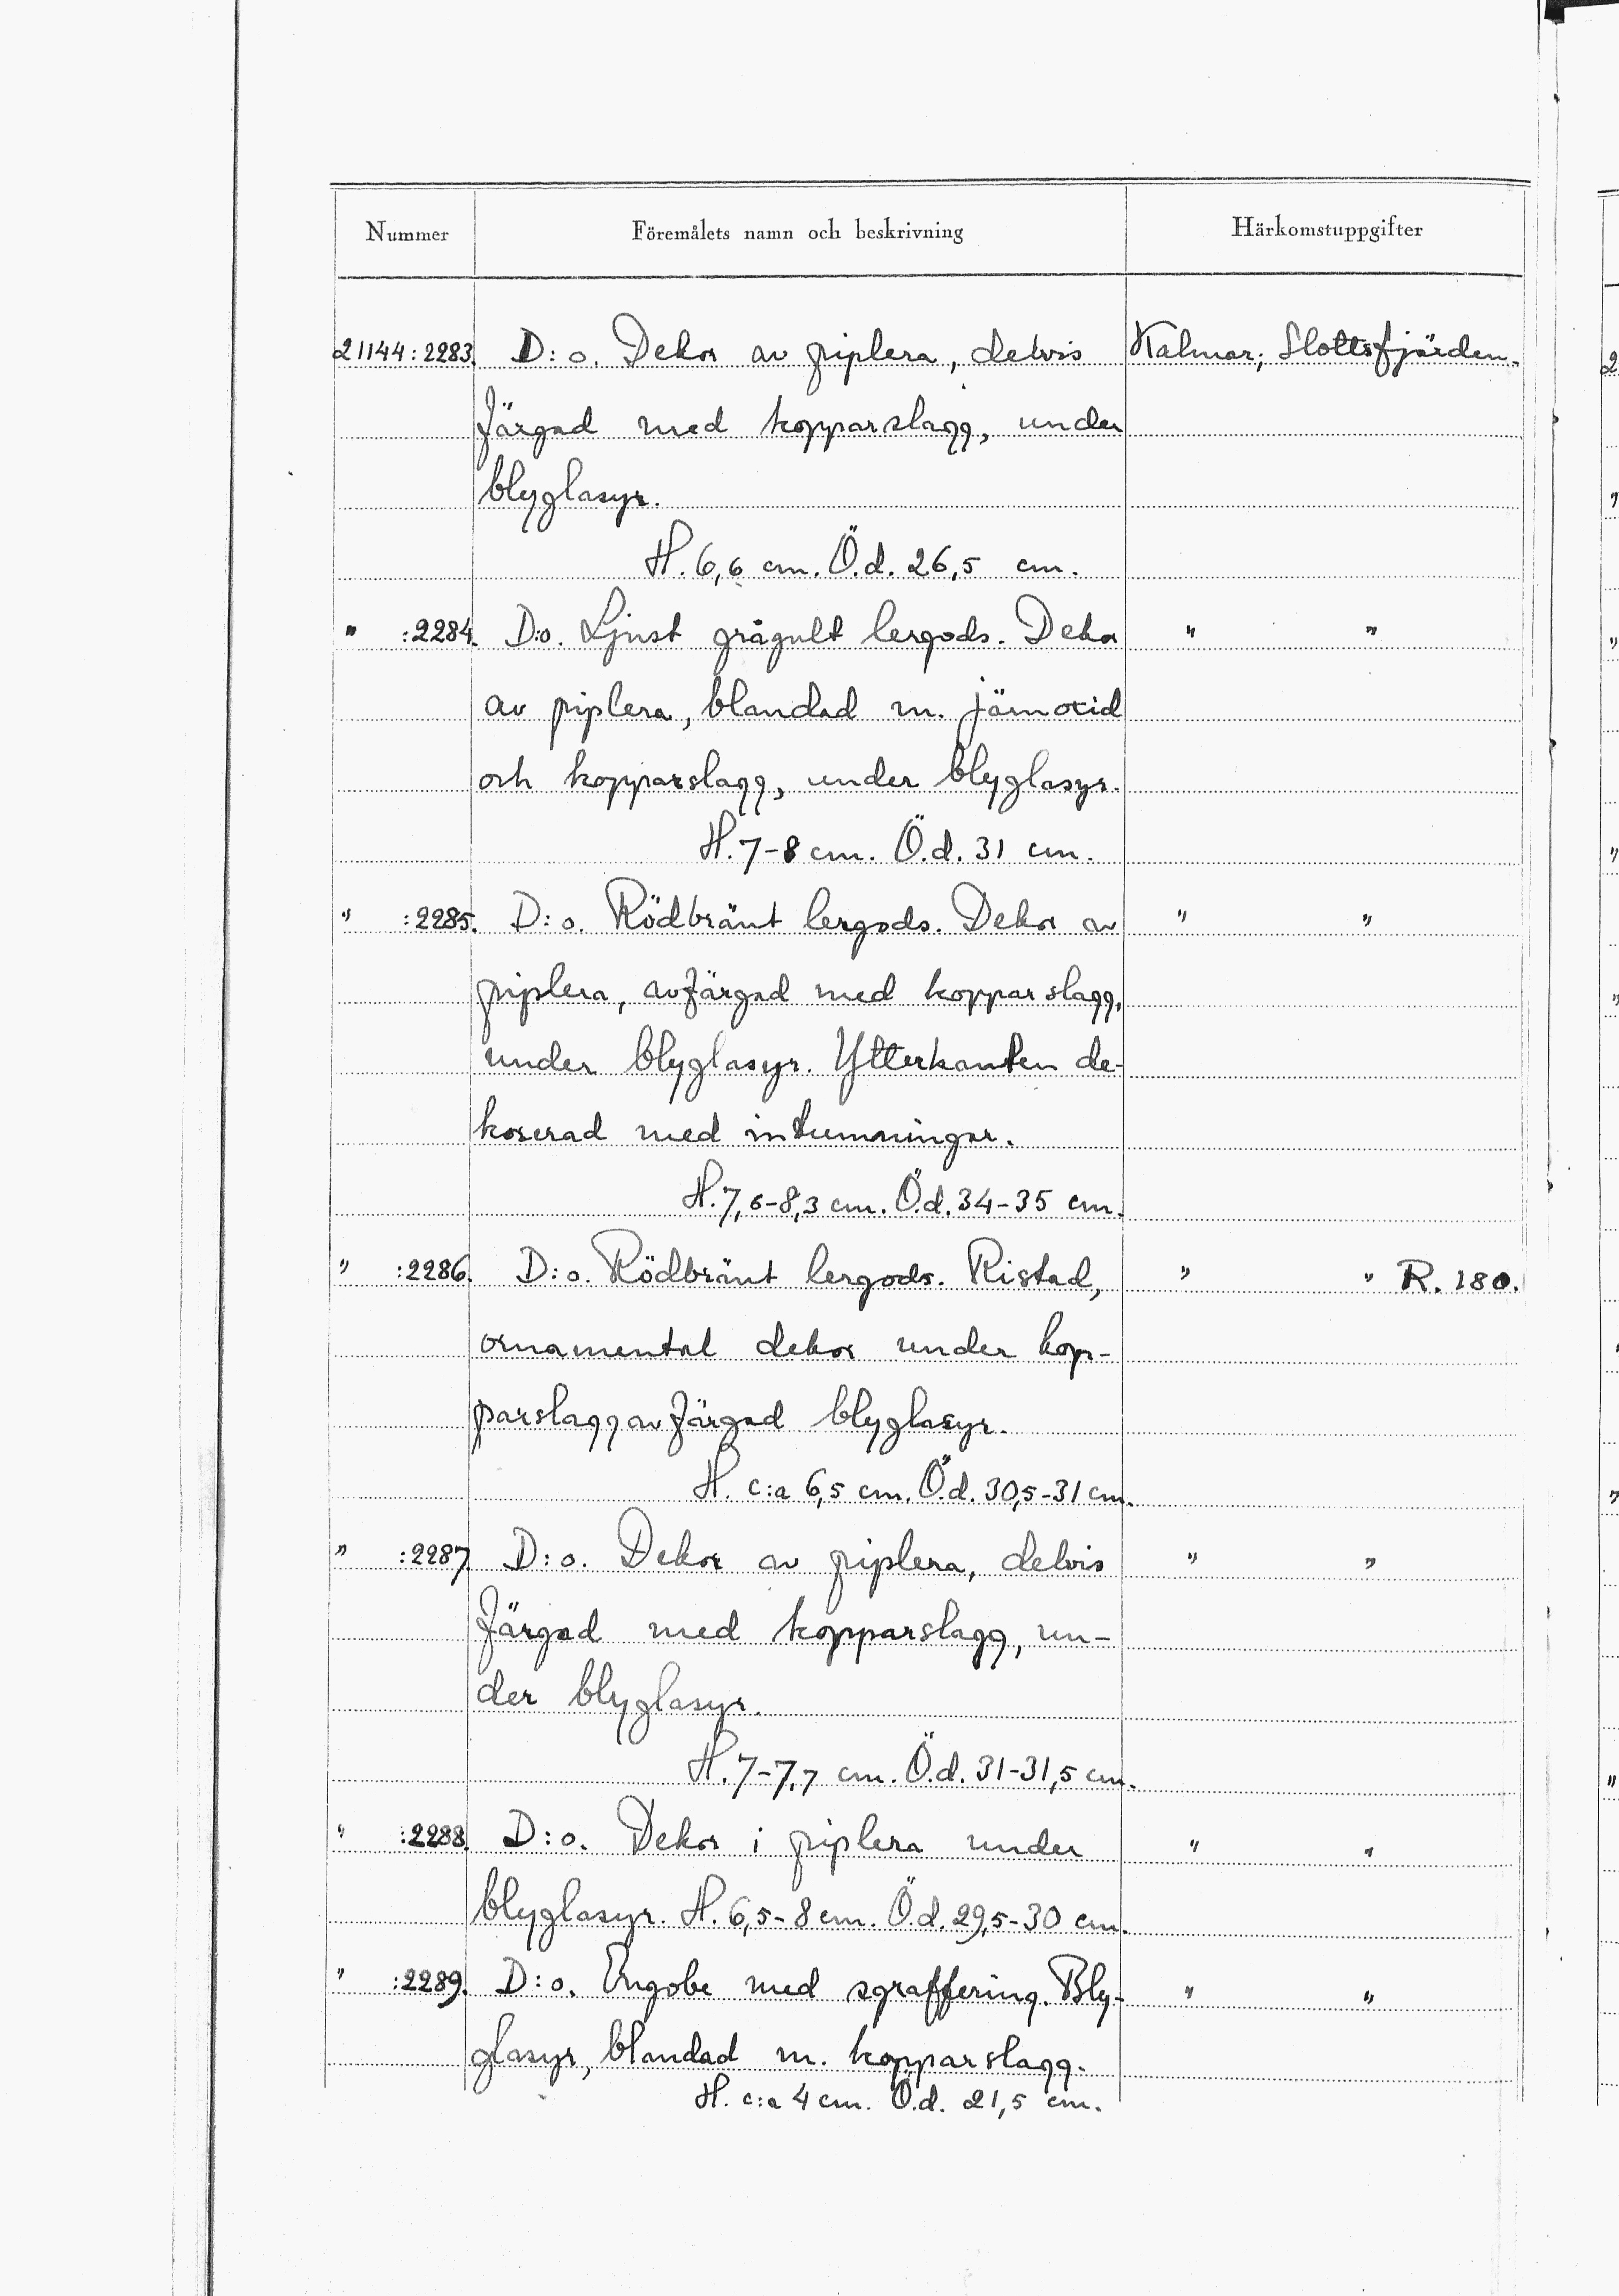 Nummer Föremålets namn och beskrivning Härkomstuppgifter
21144:2283. D:o. Dekor av piplera, delvis Kalmar; Slottsfjärden.
färgad med kopparslagg, under
blyglasyr.
H. 6,6 cm. Ö.d. 26,5 cm.
" :2284. D:o. Ljust grågult lergods. Dekor " "
av piplera, blandad m. järnoxid
och kopparslagg, under blyglasyr.
H. 7-8 cm. Ö.d. 31 cm.
" :2285. D:o. Rödbränt lergods. Dekor av " "
piplera, avfärgad med kopparslagg,
under blyglasyr. Ytterkanten de-
korerad med intumningar.
H. 7,6-8,3 cm. Ö.d. 34-35 cm.
" :2286. D:o. Rödbränt lergods. Ristad, " " R. 180.
ornamental dekor under kop-
parslaggavfärgad blyglasyr.
H. c:a 6,5 cm. Ö.d. 30,5-31 cm.
" :2287. D:o. Dekor av piplera, delvis " "
färgad med kopparslagg, un-
der blyglasyr.
H. 7-7,7 cm. Ö.d. 31-31,5 cm.
" :2288. D:o. Dekor i piplera under " "
blyglasyr. H. 6,5-8 cm. Ö.d. 29,5-30 cm.
" :2289. D:o. Engobe med sgraffering. Bly- " "
glasyr, blandad m. kopparslagg.
H. c:a 4 cm. Ö.d. 21,5 cm.